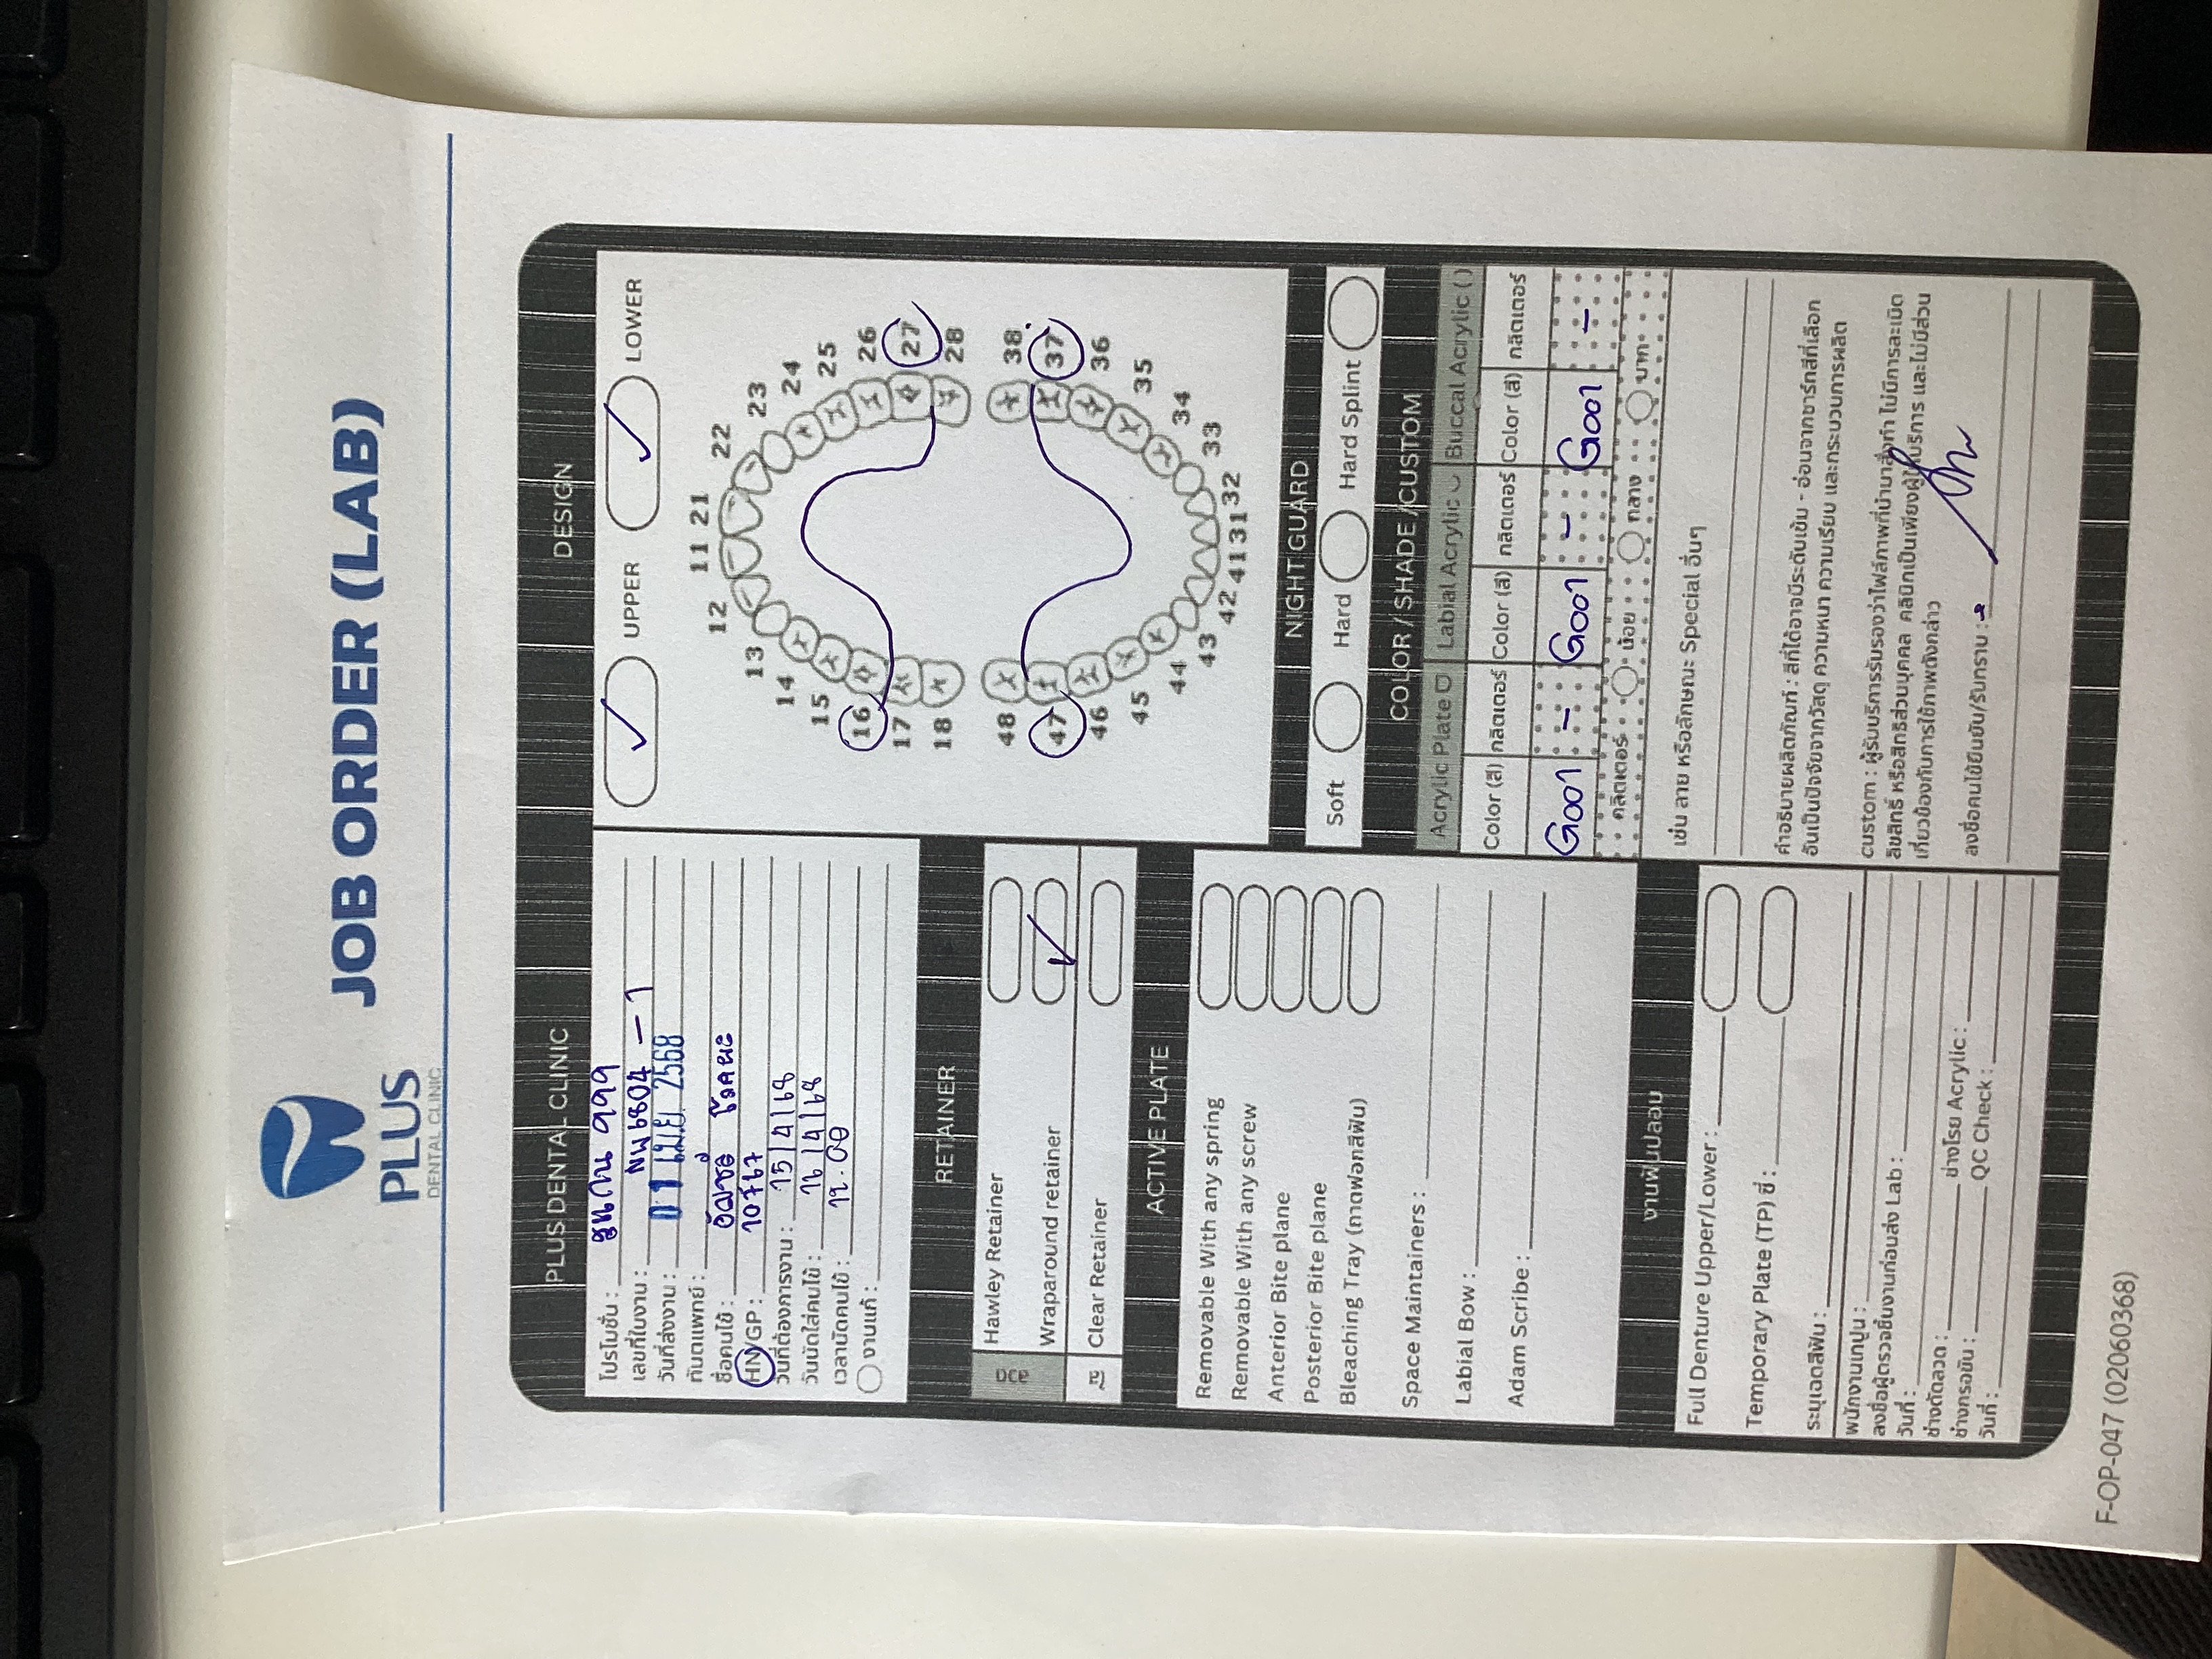 PLUS
DENTAL CLINIC
JOB ORDER (LAB)
PLUS DENTAL CLINIC
โปรโมชั่น : สแกน 999
เลขที่ใบงาน : NW6804 - 1
วันที่ส่งงาน : 01 เม.ย. 2568
ทันตแพทย์ :
ชื่อคนไข้ : อัญชลี
HN/GP : 10767
วันที่ต้องการงาน : 15/4/68
วันนัดใส่คนไข้ : 16/4/68
เวลานัดคนไข้ : 12.00
งานแก้ :
RETAINER
ลวด
Hawley Retainer
Wraparound retainer
ใส
Clear Retainer
ACTIVE PLATE
Removable With any spring
Removable With any screw
Anterior Bite plane
Posterior Bite plane
Bleaching Tray (ถาดฟอกสีฟัน)
Space Maintainers :
Labial Bow :
Adam Scribe :
งานฟันปลอม
Full Denture Upper/Lower :
Temporary Plate (TP) ซี่ :
ระบุเฉดสีฟัน :
พนักงานเทปูน :
ลงชื่อผู้ตรวจชิ้นงานก่อนส่ง Lab :
วันที่ :
ช่างดัดลวด : ช่างโรย Acrylic :
ช่างกรอขัน : QC Check :
วันที่ :
DESIGN
UPPER LOWER
11 21
12 22
13 23
14 24
15 25
16 26
17 27
18 28
48 38
47 37
46 36
45 35
44 34
43 33
42 41 31 32
NIGHT GUARD
Soft Hard Hard Splint
COLOR / SHADE /CUSTOM
Acrylic Plate Labial Acrylic Buccal Acrylic ( )
Color (สี) กลิตเตอร์ Color (สี) กลิตเตอร์ Color (สี) กลิตเตอร์
G001 - G001 - G001 -
กลิตเตอร์ น้อย กลาง มาก
เช่น ลาย หรือลักษณะ Special อื่นๆ
คำอธิบายผลิตภัณฑ์ : สีที่ได้อาจมีระดับเข้ม - อ่อนจากชาร์ทสีที่เลือก
อันเป็นปัจจัยจากวัสดุ ความหนา ความเรียบ และกระบวนการผลิต
custom : ผู้รับบริการรับรองว่าไฟล์ภาพที่นำมาสั่งทำ ไม่มีการละเมิด
ลิขสิทธิ์ หรือสิทธิส่วนบุคคล คลินิกเป็นเพียงผู้ให้บริการ และไม่มีส่วน
เกี่ยวข้องกับการใช้ภาพดังกล่าว
ลงชื่อคนไข้ยืนยัน/รับทราบ :
F-OP-047 (02060368)